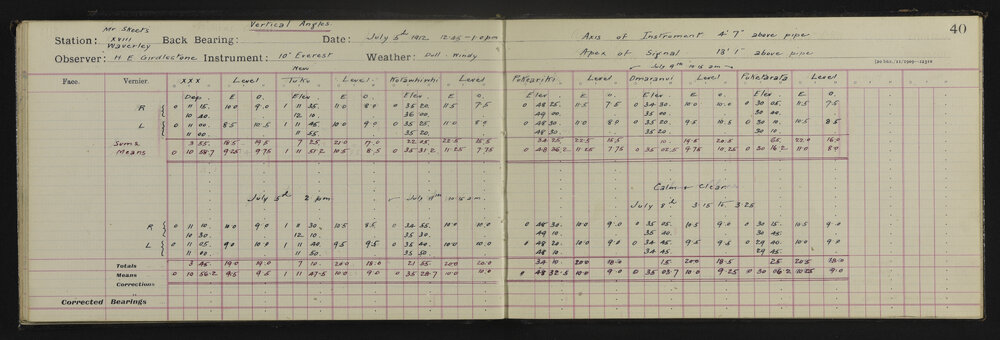 Mr Skeets Vertical Angles. 40
Station: XVIII Waverley Back Bearing: Date: July 5th 1912 12.45 - 1.0 pm Axis of Instrument 4' 7" above pipe
Observer: H E Girdlestone Instrument: 10" Everest New Weather: Dull. Windy Apex of Signal 13' 1" above pipe
July 9th 10.15 am
Face. Vernier. XXX Level Tuku Level. Level Pukeariki Level Omaranui Level Puketarata Level
Dep. E O. Elev. E O. Elev. E O. Elev. E O. Elev. E O. Elev. E O.
R 0 11 15. 10.0 9.0 1 11 35. 11.0 8.0 0 35 20. 11.5 7.5 0 48 25. 11.5 7.5 0 34 30. 10.0 10.0 0 30 05. 11.5 7.5
10 40. 12 10. 36 00. 49 00. 35 00. 30 40.
L 0 11 00. 8.5 10.5 1 11 45 10.0 9.0 0 35 25. 11.0 8.0 0 48 30. 11.0 8.0 0 35 20. 9.5 10.5 0 30 10. 10.5 8.5
11 00. 11 55. 35 20. 48 30. 35 20. 30 10.
Sums 3 55. 18.5 19.5 7 25. 21.0 17.0 22.05 22.5 15.5 34.25 22.5 15.5 10. 19.5 20.5 65. 22.0 16.0
Means 0 10 58.7 9.25 9.75 1 11 51.2 10.5 8.5 0 35 31.2 11.25 7.75 0 48 36.2 11.25 7.75 0 35 02.5 9.75 10.25 0 30 16.2 11.0 8.0
Calm & Clear
July 5th 2 pm July 9th 10.15 am. July 8th 3.15 to 3.25
R 0 11 10. 10.0 9.0 1 11 30. 10.5 8.5 0 34 55. 10.0 10.0 0 48 30. 10.0 9.0 0 35 05. 10.5 9.0 0 30 15. 10.5 9.0
10 30. 12 10. 35 30. 49 10. 35 40. 30 45.
L 0 11 05. 9.0 10.0 1 11 40. 9.5 9.5 0 35 40. 10.0 10.0 0 48 20. 10.0 9.0 0 34 45 9.5 9.5 0 29 40. 10.0 9.0
11 00. 11 50. 35 50. 48 10. 34 45 29 45.
Totals 3 45 19.0 19.0 7 10. 20.0 18.0 21 55 20.0 20.0 34 10. 20.0 18.0 15 20.0 18.5 25 20.5 18.0
Means 0 10 56.2 9.5 9.5 1 11 47.5 10.0 9.0 0 35 28.7 10.0 10.0 0 48 32.5 10.0 9.0 0 35 03.7 10.0 9.25 0 30 06.2 10.25 9.0
Corrections
Corrected Bearings